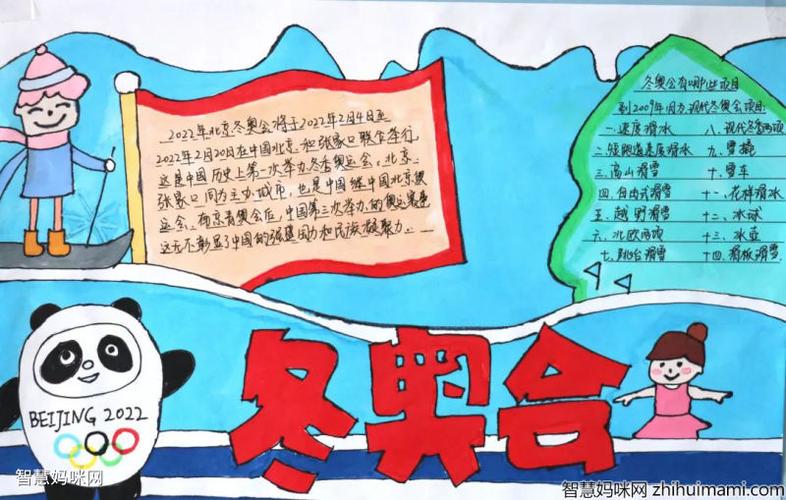 2022年北京冬奥会将于2022年2月4日至
2022年2月20日在中国北京和张家口联合举行,
这是中国历史上第一次举办冬季奥运会、北京、
张家口同为主办城市,也是中国继中国北京奥
运会、南京青奥会后,中国第三次举办的奥运赛事
这无不彰显了中国的强盛国力和民族凝聚力.
冬奥会有哪些项目
到2009年因为,现代冬奥会项目:
一.速度滑冰
二.短跑道速度滑冰
三.高山滑雪
四.自由式滑雪
五.越野滑雪
六.北欧两项
七.跳台滑雪
八.现代冬季两项
九.雪橇
十.雪车
十一.花样滑冰
十二.冰球
十三.冰壶
十四.滑板滑雪
BEIJING 2022
冬奥会
智慧妈咪网
智慧妈咪网 zhihuimami.com